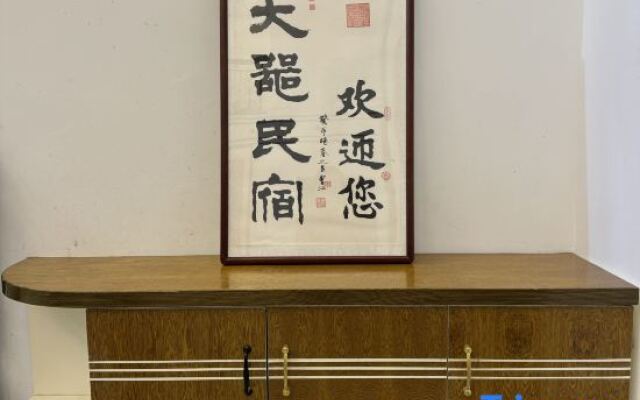 大器民宿
欢迎您